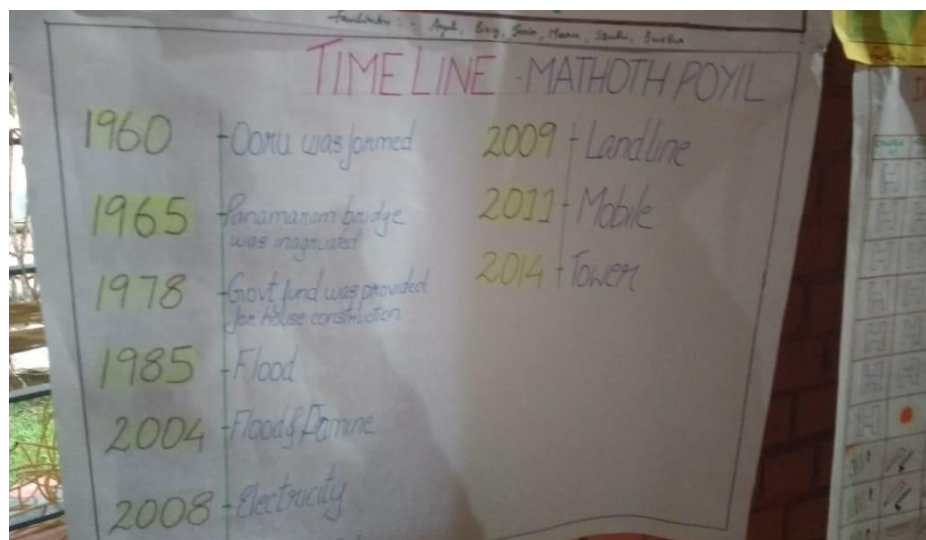 TIME LINE - MATHOTH POYIL
1960 Ooru was formed
1965 Panamaram bridge
was inagruated
1978 Govt fund was provided
for house construction
1985 Flood
2004 Flood & Famine
2008 Electricity
2009 Landline
2011 Mobile
2014 Tower